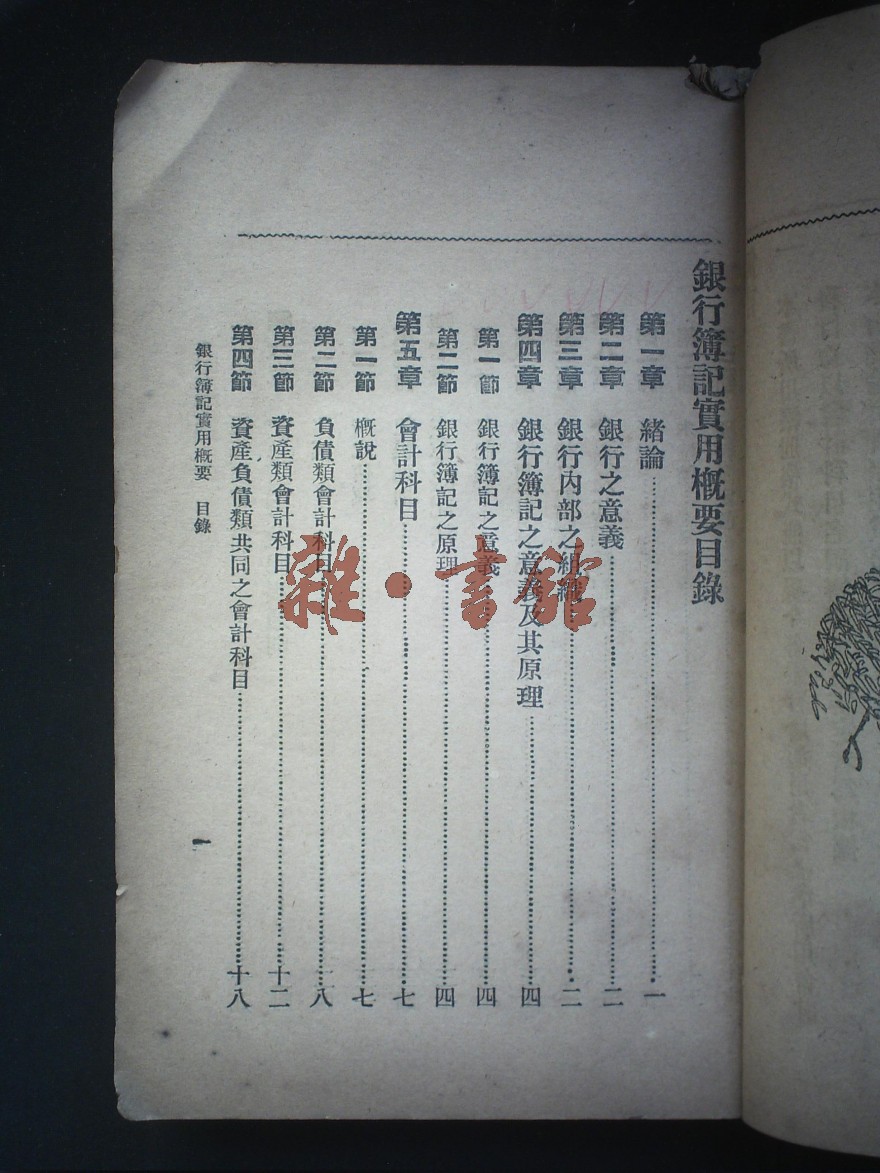 銀行簿記實用概要目錄
第一章 緒論……一
第二章 銀行之意義……二
第三章 銀行內部之組織……二
第四章 銀行簿記之意義及其原理……四
第一節 銀行簿記之意義……四
第二節 銀行簿記之原理……四
第五章 會計科目……七
第一節 概說……七
第二節 負債類會計科目……八
第三節 資產類會計科目……十二
第四節 資產負債類共同之會計科目……十八
銀行簿記實用概要 目錄
一
雜·書館